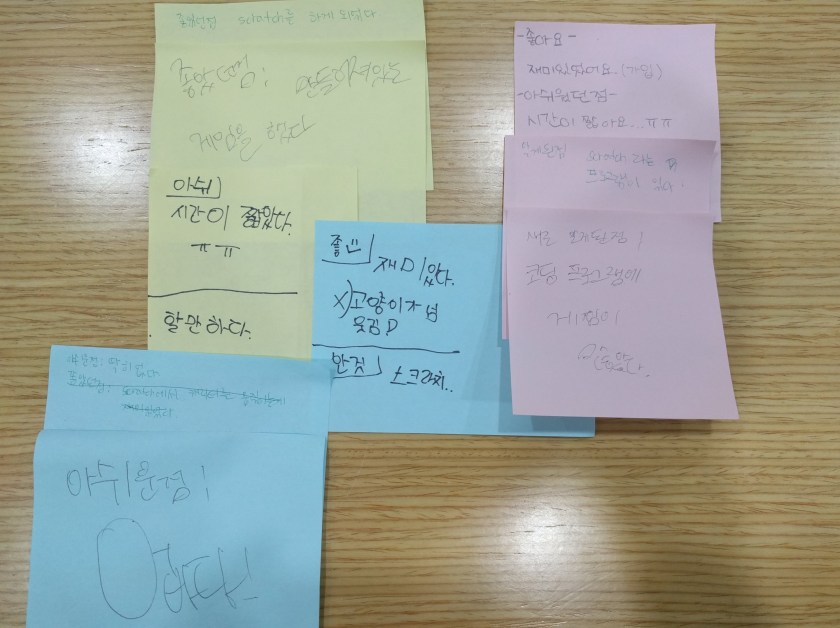 좋았던점 scratch를 하게 되었다
좋았던점: 만들어져있는
게임을 했다
아쉬
시간이 짧았다.
ㅠㅠ
할만하다.
좋
재미있었다.
X)고양이가 넘
웃김
스크라치..
-좋아요-
재미있었어요.(가입)
-아쉬웠던점-
시간이 짧아요...ㅠㅠ
알게된점 scratch 라는
프로그램이 있다!
새로 알게된점!
코딩 프로그램에
게임이
아쉬운점: 딱히없다
좋았던점: scratch에서
아쉬운점!
없다!